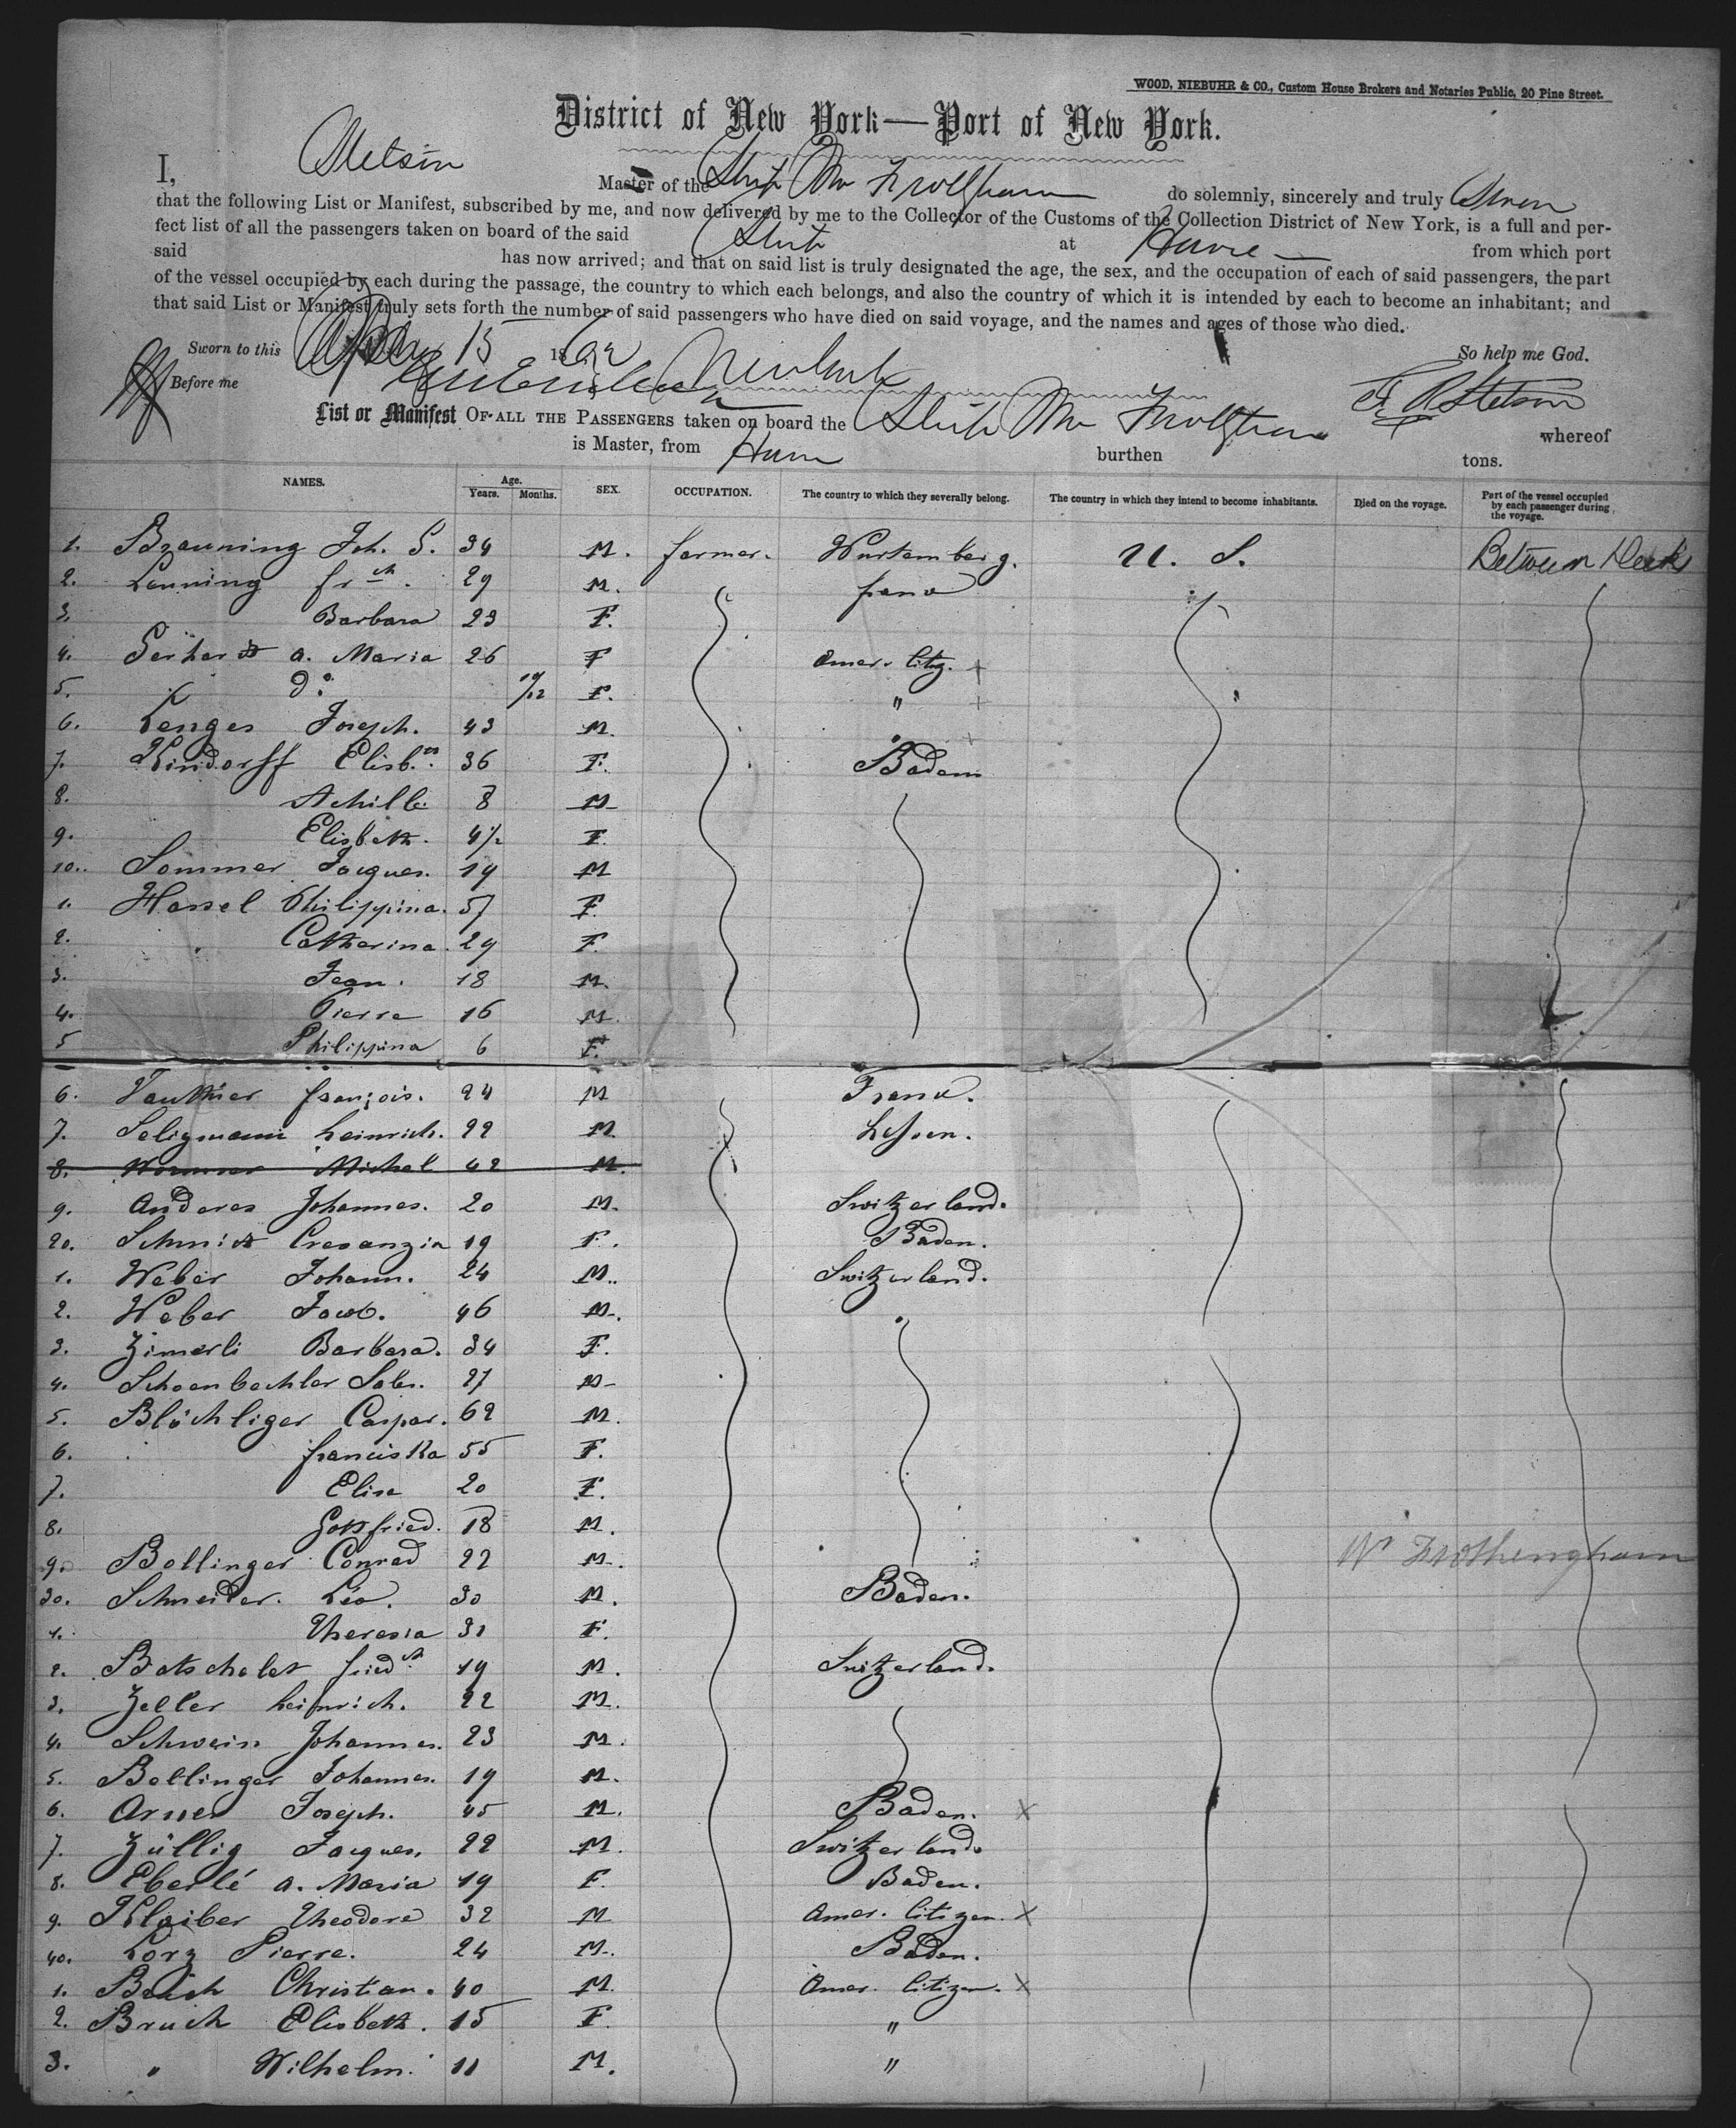 WOOD, NIEBUHR & CO., Custom House Brokers and Notaries Public, 20 Pine Street.
District of New York—Port of New York.
I, Stetson Master of the Ship Wm Frothgham do solemnly, sincerely and truly Swear
that the following List or Manifest, subscribed by me, and now delivered by me to the Collector of the Customs of the Collection District of New York, is a full and per-
fect list of all the passengers taken on board of the said Ship at Havre from which port
said has now arrived; and that on said list is truly designated the age, the sex, and the occupation of each of said passengers, the part
of the vessel occupied by each during the passage, the country to which each belongs, and also the country of which it is intended by each to become an inhabitant; and
that said List or Manifest truly sets forth the number of said passengers who have died on said voyage, and the names and ages of those who died.
Sworn to this 15 1862 So help me God.
Before me Stetson
List or Manifest OF ALL THE PASSENGERS taken on board the Ship Wm whereof
is Master, from Havre burthen tons.
NAMES. Age. Years. Months. SEX. OCCUPATION. The country to which they severally belong. The country in which they intend to become inhabitants. Died on the voyage. Part of the vessel occupied by each passenger during the voyage.
1. Brauning Joh. G. 34 M. farmer. Wurtemberg. U. S. Between Decks
2. Lanning frch. 29 M. france
3. Barbara 23 F.
4. Gerhardt a. Maria 26 F Amer. Citiz. +
5. " do. 10/12 F. " +
6. Lenges Joseph. 43 M. " +
7. Kindorff Elisbth. 36 F. Baden
8. Achille 8 M
9. Elisbeth. 4½ F.
10. Sommer Jacques. 19 M
1. Hassel Philippina. 57 F.
2. " Catherina. 29 F.
3. Jean. 18 M.
4. Pierre 16 M.
5 Philippina 6 F.
6. Vauthier françois. 24 M France.
7. Seligmann heinrich. 22 M. hessen.
8. Michel 42 M.
9. Anderes Johannes. 20 M. Switzerland.
20. Schmidt Cresanzia 19 F. Baden.
1. Weber Johann. 24 M. Switzerland.
2. Weber Jacob. 46 M. "
3. Zimerli Barbara. 34 F.
4. Schoenbachler 27 M
5. Blöchliger Caspar. 62 M.
6. " franciska 55 F.
7. Elise 20 F.
8. Gottfried. 18 M.
9. Bollinger Conrad 22 M. Wm Frothingham
30. Schneider. Léo. 30 M. Baden.
1. Theresia 31 F.
2. Batschelet friedch. 19 M. Switzerland.
3. Zeller heinrich. 22 M.
4. Schweis Johannes. 23 M.
5. Bollinger Johannes. 19 M.
6. Joseph. 45 M. Baden. X
7. Züllig Jacques. 22 M. Switzerland.
8. Eberlé a. Maria 19 F. Baden.
9. Klaiber Theodore 32 M Amer. Citizen. X
40. Lorz Pierre. 24 M. Baden.
1. Christian. 40 M. Amer. Citizen. X
2. Bruch Elisbeth. 15 F. "
3. " Wilhelm. 11 M. "